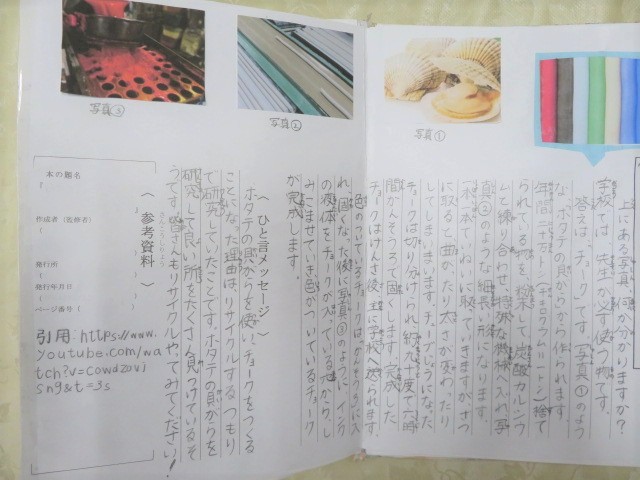 写真①
写真②
写真③
上にある写真、何か分かりますか？
学校では、先生が
答えは、「チョーク」です。写真①のよう
な、ホタテの貝がらから作られます。
年間二十万トン(千キログラム＝一トン)捨て
られている物を粉末にして炭酸カルシウ
ムと練り合わせ、特殊な機械へ入れ、写
真②のような細長い形になります。
ていねいに取っていきますが、さつ
に取ると曲がったり太さが変わったり
してしまいます。チョークらしくなった
チョークは切り分けられ、約 度で六時
間かんそうして固めます。完成した
チョークはけんさ後、主に学校へ送られます。
色のついているチョークは、
れ、固くなった後に写真③のようにインク
の液体をチョークがすっている
みこませていき色がついているチョーク
が完成します。
〈ひと言メッセージ〉
ホタテの貝がらを使い、チョークをつくる
ことになった理由は、リサイクルするつもり
で研究していたことです。ホタテの貝がらを
研究して良い所をたくさん見つけているそ
うです。皆さんもリサイクルやってみてください！
〈参考資料〉
さんこうしりょう
本の題名
作成者（監修者）
発行所
発行年月日
ページ番号
引用:https://www.
youtube.com/wa